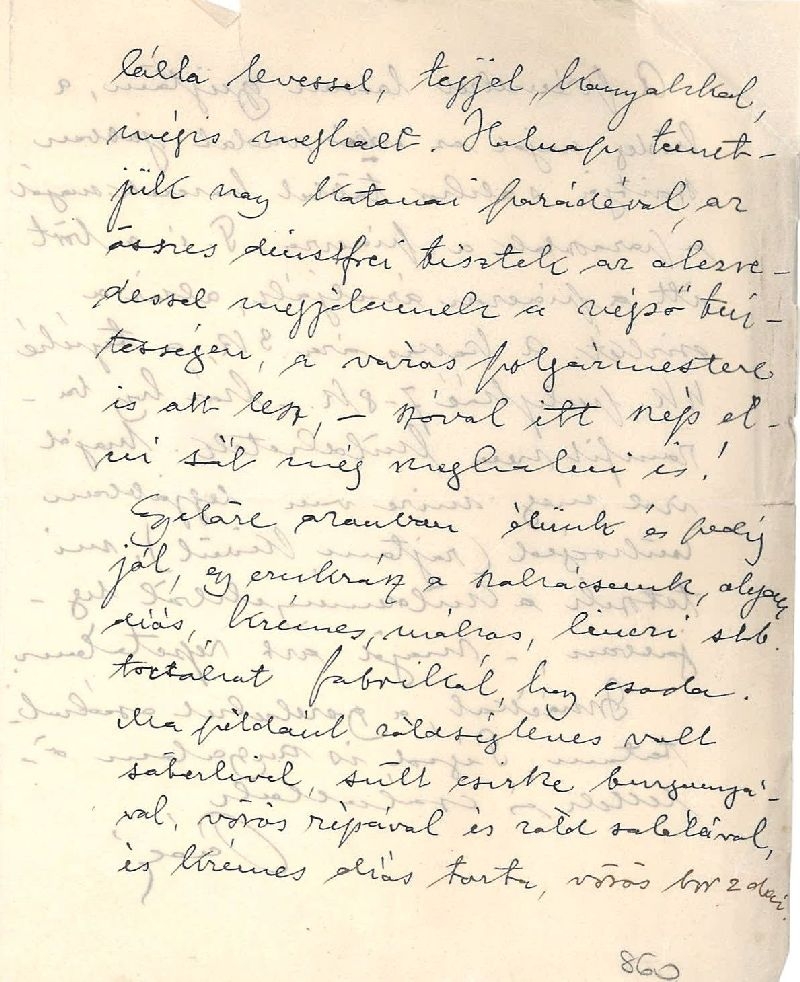 lálta levessel, tejjel, konyakkal,
mégis meghalt. Holnap temet-
jük nagy katonai parádéval, az
összes dienstfrei tisztek az alezre-
dessel megjelennek a végső tisz-
tességen, a város polgármestere
is ott lesz, – szóval itt szép el-
vi meghalni is!
Egyelőre azonban élünk és pedig
jól, egy cukrász a szakácsunk, olyan
diós, krémes, málnás, linczi stb.
tortákat fabrikál, hogy csoda.
Ma például zöldségleves volt
sűlt csirke burgonyá-
val, vörös répával és zöld salátával,
és krémes diós torta, vörös bor 2 dci.
860